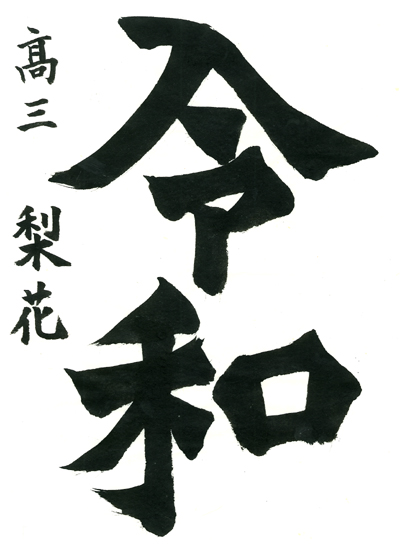 令和
髙三 梨花